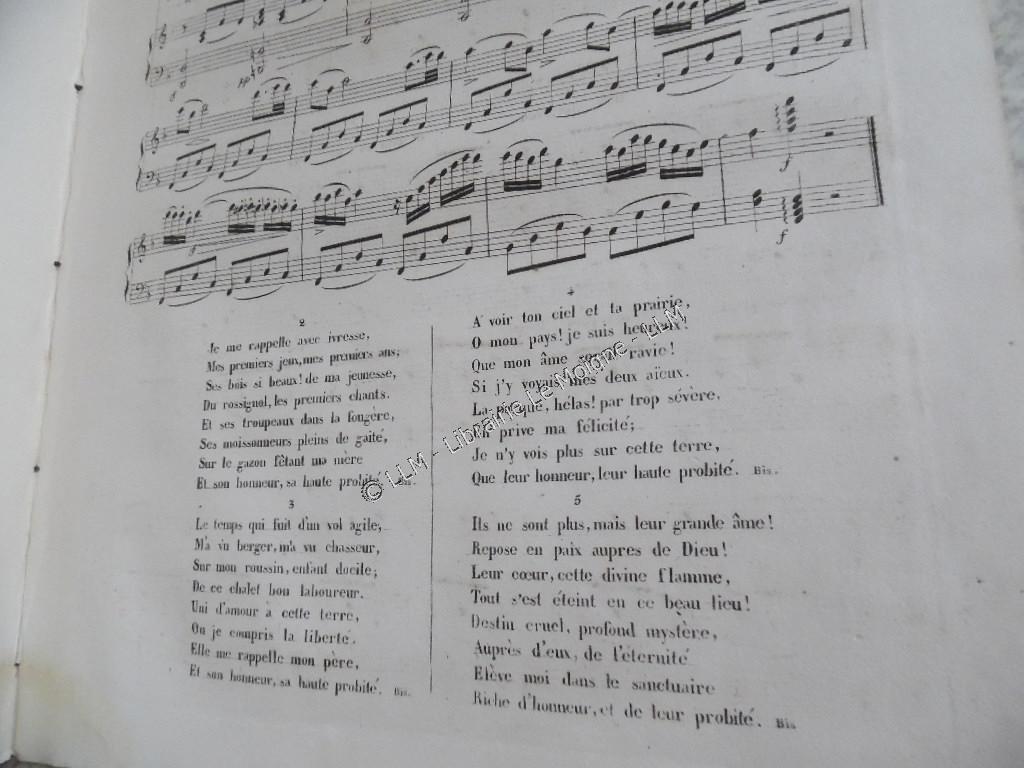 2
Je me rappelle avec ivresse,
Mes premiers jeux, mes premiers ans;
Ses bois si beaux! de ma jeunesse,
Du rossignol, les premiers chants.
Et ses troupeaux dans la fougère,
Ses moissonneurs pleins de gaité,
Sur le gazon fêtant ma mère
Et son honneur, sa haute probité. Bis.
3
Le temps qui fuit d'un vol agile,
M'a vu berger, m'a vu chasseur,
Sur mon roussin, enfant docile;
De ce chalet bon laboureur.
Uni d'amour à cette terre,
Ou je compris la liberté.
Elle me rappelle mon père,
Et son honneur, sa haute probité. Bis.
4
A voir ton ciel et ta prairie,
O mon pays! je suis heureux!
Que mon âme ravie!
Si j'y voyais mes deux aïeux.
La hélas! par trop sévère,
prive ma félicité;
Je n'y vois plus sur cette terre,
Que leur honneur, leur haute probité. Bis.
5
Ils ne sont plus, mais leur grande âme!
Repose en paix aupres de Dieu!
Leur cœur, cette divine flamme,
Tout s'est éteint en ce beau lieu!
Destin cruel, profond mystère,
Auprès d'eux, de l'éternité
Elève moi dans le sanctuaire
Riche d'honneur, et de leur probité. Bis.
© LLM - Librairie Le Molone - LLM